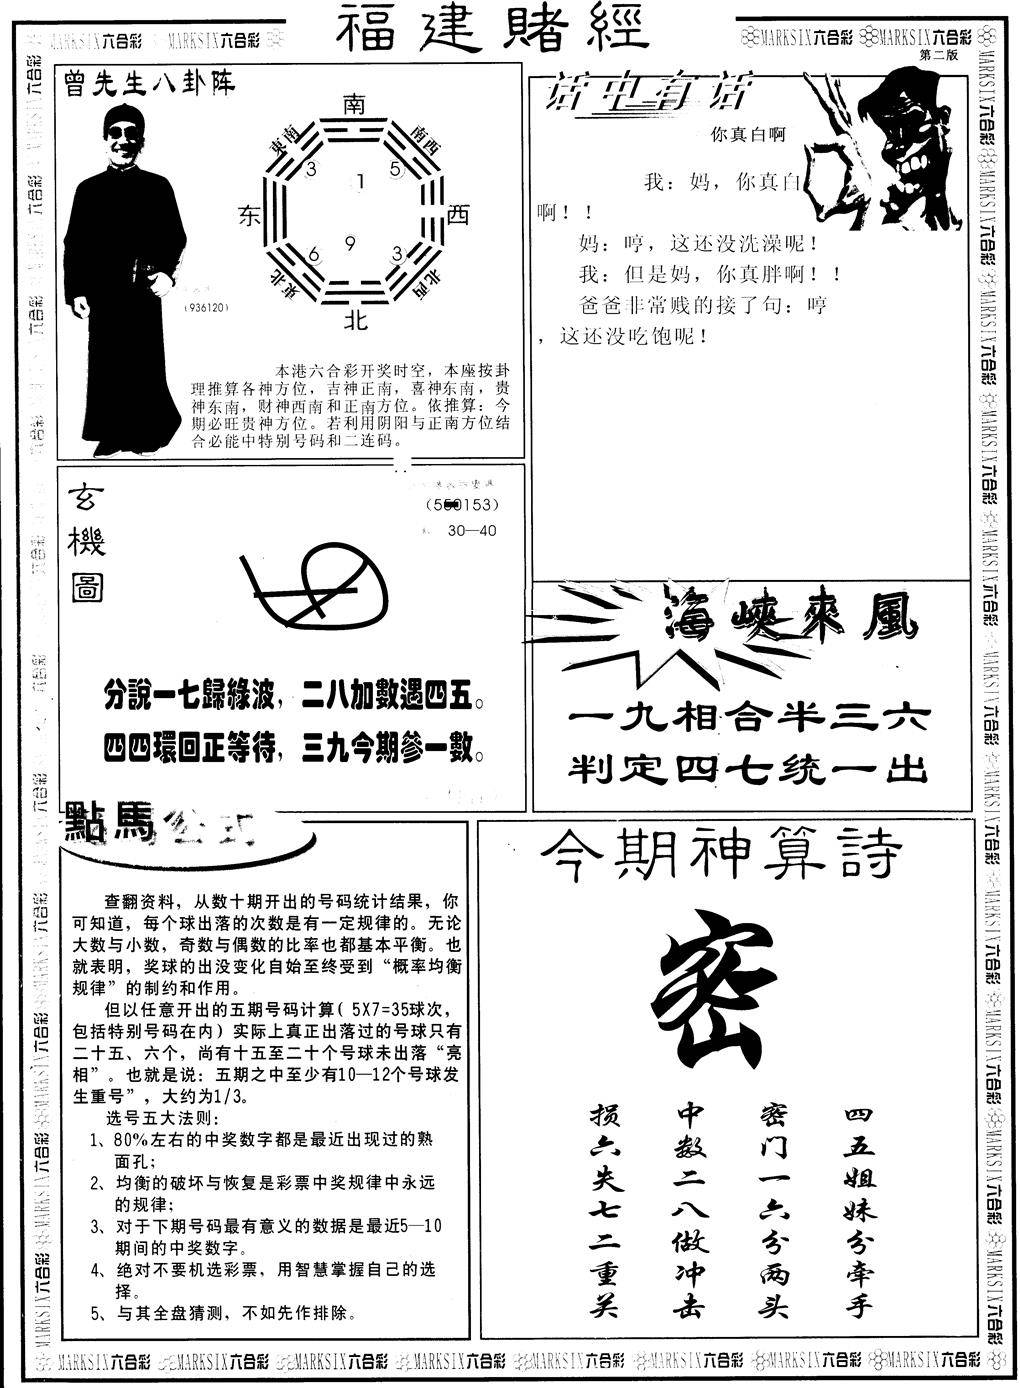 福建賭經
MARKSIX六合彩 MARKSIX六合彩
MARKSIX六合彩 MARKSIX六合彩
第二版
曾先生八卦阵
南
東南
南西
3
1
5
东
西
6
9
3
東北
北西
北
(936120)
本港六合彩开奖时空，本座按卦
理推算各神方位，吉神正南，喜神东南，贵
神东南，财神西南和正南方位。依推算：今
期必旺贵神方位。若利用阴阳与正南方位结
合必能中特别号码和二连码。
话中有话
你真白啊
我：妈，你真白
啊！！
妈：哼，这还没洗澡呢！
我：但是妈，你真胖啊！！
爸爸非常贱的接了句：哼
，这还没吃饱呢！
玄機圖
30—40
分說一七歸綠波，二八加數遇四五。
四四環回正等待，三九今期參一數。
海峽來風
一九相合半三六
判定四七统一出
點馬公式
查翻资料，从数十期开出的号码统计结果，你
可知道，每个球出落的次数是有一定规律的。无论
大数与小数，奇数与偶数的比率也都基本平衡。也
就表明，奖球的出没变化自始至终受到“概率均衡
规律”的制约和作用。
但以任意开出的五期号码计算( 5X7=35球次，
包括特别号码在内）实际上真正出落过的号球只有
二十五、六个，尚有十五至二十个号球未出落“亮
相”。也就是说：五期之中至少有10—12个号球发
生重号”，大约为1/3。
选号五大法则：
1、80%左右的中奖数字都是最近出现过的熟
面孔；
2、均衡的破坏与恢复是彩票中奖规律中永远
的规律；
3、对于下期号码最有意义的数据是最近5—10
期间的中奖数字。
4、绝对不要机选彩票，用智慧掌握自己的选
择。
5、与其全盘猜测，不如先作排除。
今期神算詩
密
四五姐妹分牵手
密门一六分两头
中数二八做冲击
损六失七二重关
MARKSIX六合彩 MARKSIX六合彩 MARKSIX六合彩 MARKSIX六合彩 MARKSIX六合彩 MARKSIX六合彩 MARKSIX六合彩 MARKSIX六合彩